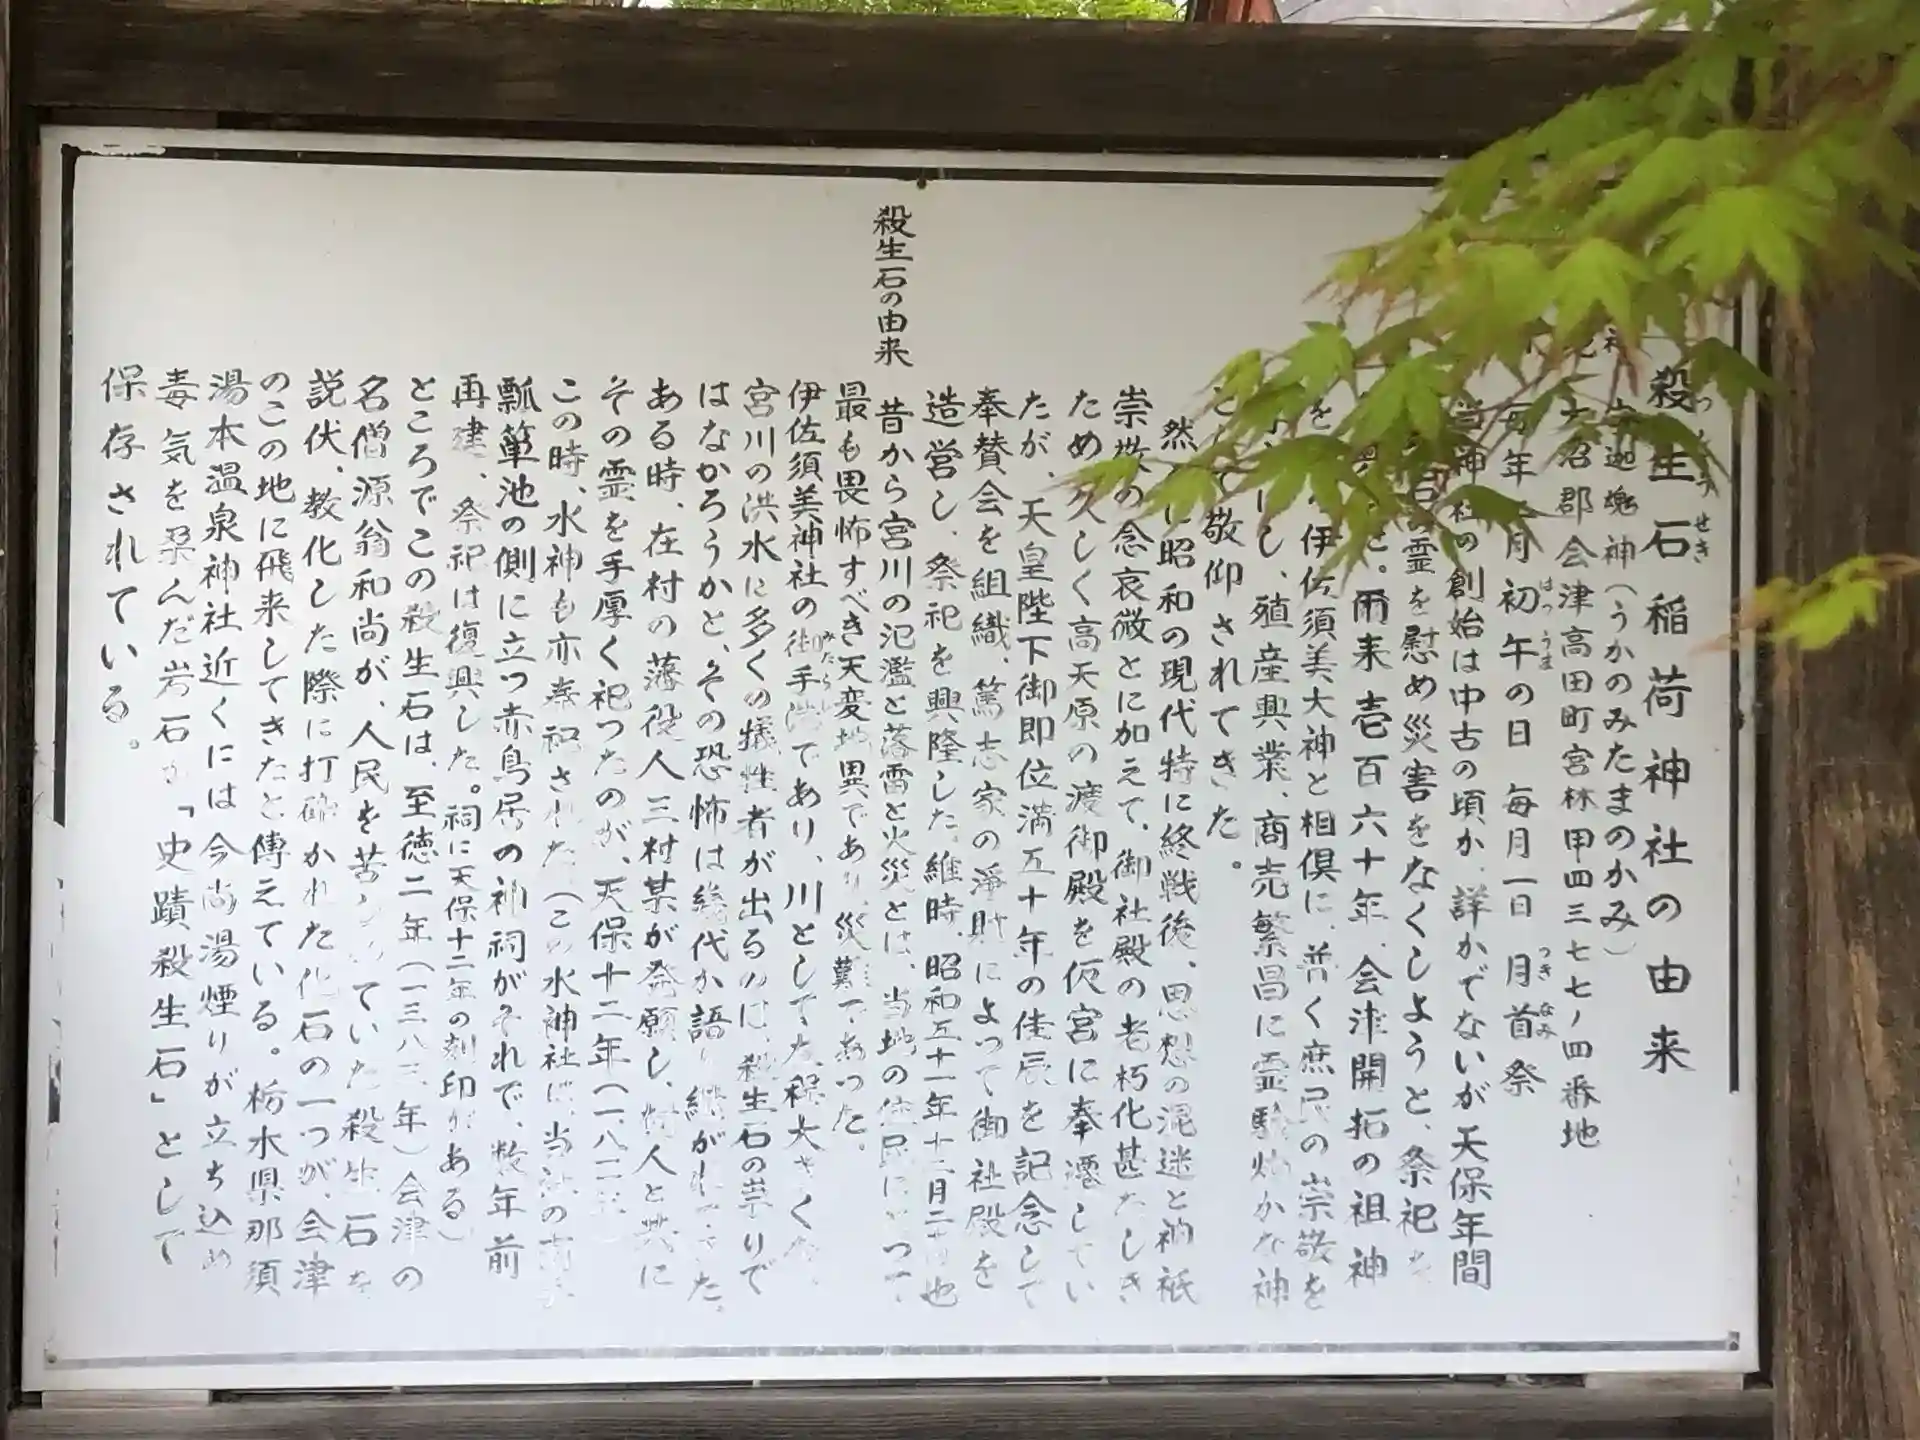 殺生石稲荷神社の由来
迦魂神（うかのみたまのかみ）
大沼郡会津高田町宮林甲四三七七ノ四番地
毎年 月初午の日 毎月一日 月首祭
当神社の創始は中古の頃か、詳かでないが天保年間
霊を慰め災害をなくしようと、祭祀を
爾来壱百六十年、会津開拓の祖神
伊佐須美大神と相倶に、普く庶民の崇敬を
し、殖産興業、商売繁昌に霊験灼かな神
として敬仰されてきた。
然 に昭和の現代特に終戦後、思想の混迷と神祇
崇敬の念哀微とに加えて、御社殿の老朽化甚だしき
ため久しく高天原の渡御殿を仮宮に奉遷してい
たが、天皇陛下御即位満五十年の佳辰を記念して
奉賛会を組織、篤志家の淨財によって御社殿を
造営し、祭祀を興隆した。維時、昭和五十一年十二月二 日也
殺生石の由来
昔から宮川の氾濫と落雷と火災とは、当地の住民にとって
最も畏怖すべき天変地異であり、災難であった。
伊佐須美神社の御手洗であり、川としても程大きくない
宮川の洪水に多くの犠牲者が出るのは、殺生石の祟りで
はなかろうかと、その恐怖は幾代か語り継がれてきた。
ある時、在村の藩役人三村某が発願し、村人と共に
その霊を手厚く祀つたのが、天保十二年（一八
この時、水神も亦奉祀された（この水神社は、当社の南
瓢箪池の側に立つ赤鳥居の神祠がそれで、数年前
再建、祭祀は復興した。祠に天保十二年の刻印がある）
ところでこの殺生石は、至徳二年（一三八三年）会津の
名僧源翁和尚が、人民を苦しめていた殺生石を
説伏、教化した際に打砕かれた化石の一つが、会津
のこの地に飛来してきたと傳えている。栃木県那須
湯本温泉神社近くには今尚湯煙りが立ち込め
毒気を孕んだ岩石が「史蹟殺生石」として
保存されている。